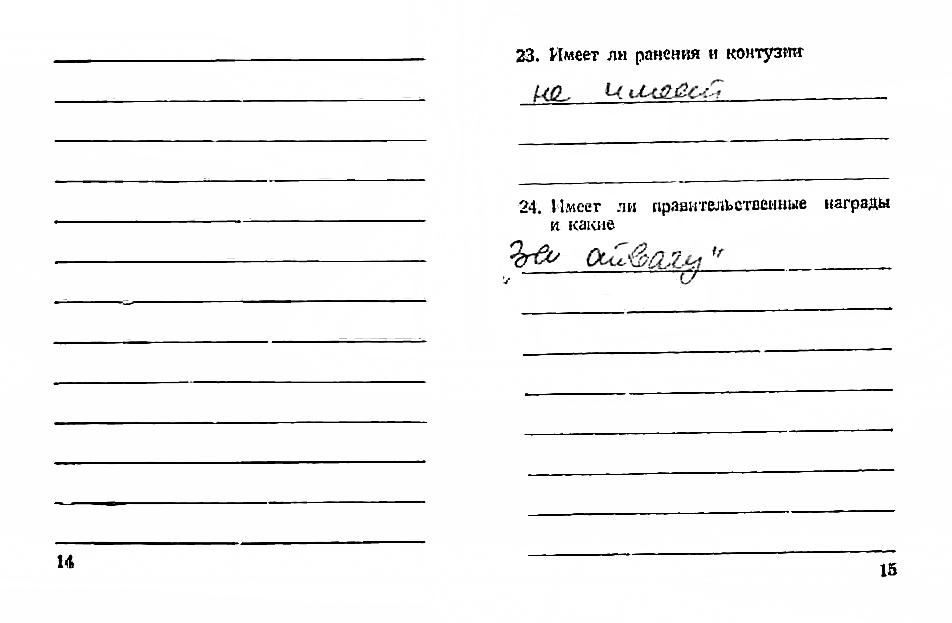 23. Имеет ли ранения и контузии
не имеет
24. Имеет ли правительственные награды
и какие
„За отвагу"
14
15